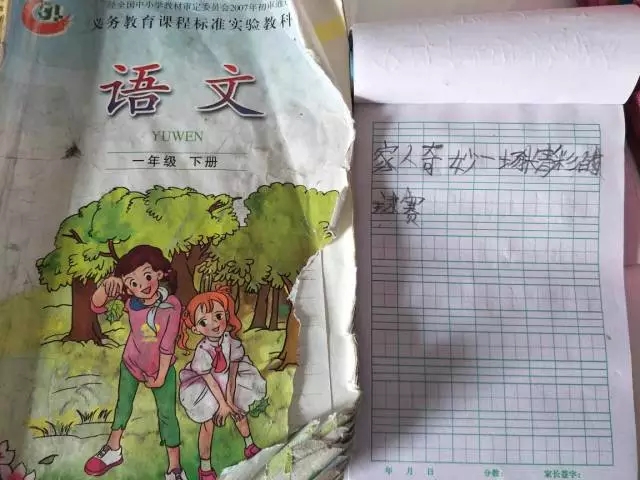 经全国中小学教材审定委员会2007年初审
义务教育课程标准实验教科
语文
YUWEN
一年级 下册
家人夺妙一场精彩的
球赛
年 月 日 分数: 家长签字: